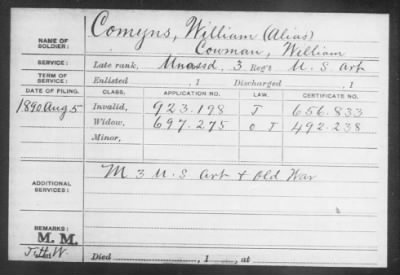 NAME OF SOLDIER: Comyns, William (Alias)
Cowman, William
SERVICE: Late rank, Unassd, 3 Reg't U.S. Art
TERM OF SERVICE: Enlisted , 1 Discharged , 1
DATE OF FILING. CLASS. APPLICATION NO. LAW. CERTIFICATE NO.
1890 Aug 5 Invalid, 923.198 J 656.833
Widow, 697.275 O J 492.238
Minor,
ADDITIONAL SERVICES: M 3 U.S Art & Old War
REMARKS:
M. M.
Died , 1 , at